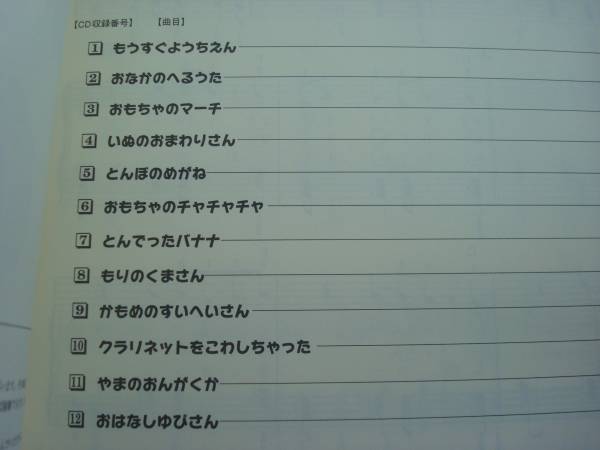 【CD収録番号】 【曲目】
1 もうすぐようちえん
2 おなかのへるうた
3 おもちゃのマーチ
4 いぬのおまわりさん
5 とんぼのめがね
6 おもちゃのチャチャチャ
7 とんでったバナナ
8 もりのくまさん
9 かもめのすいへいさん
10 クラリネットをこわしちゃった
11 やまのおんがくか
12 おはなしゆびさん